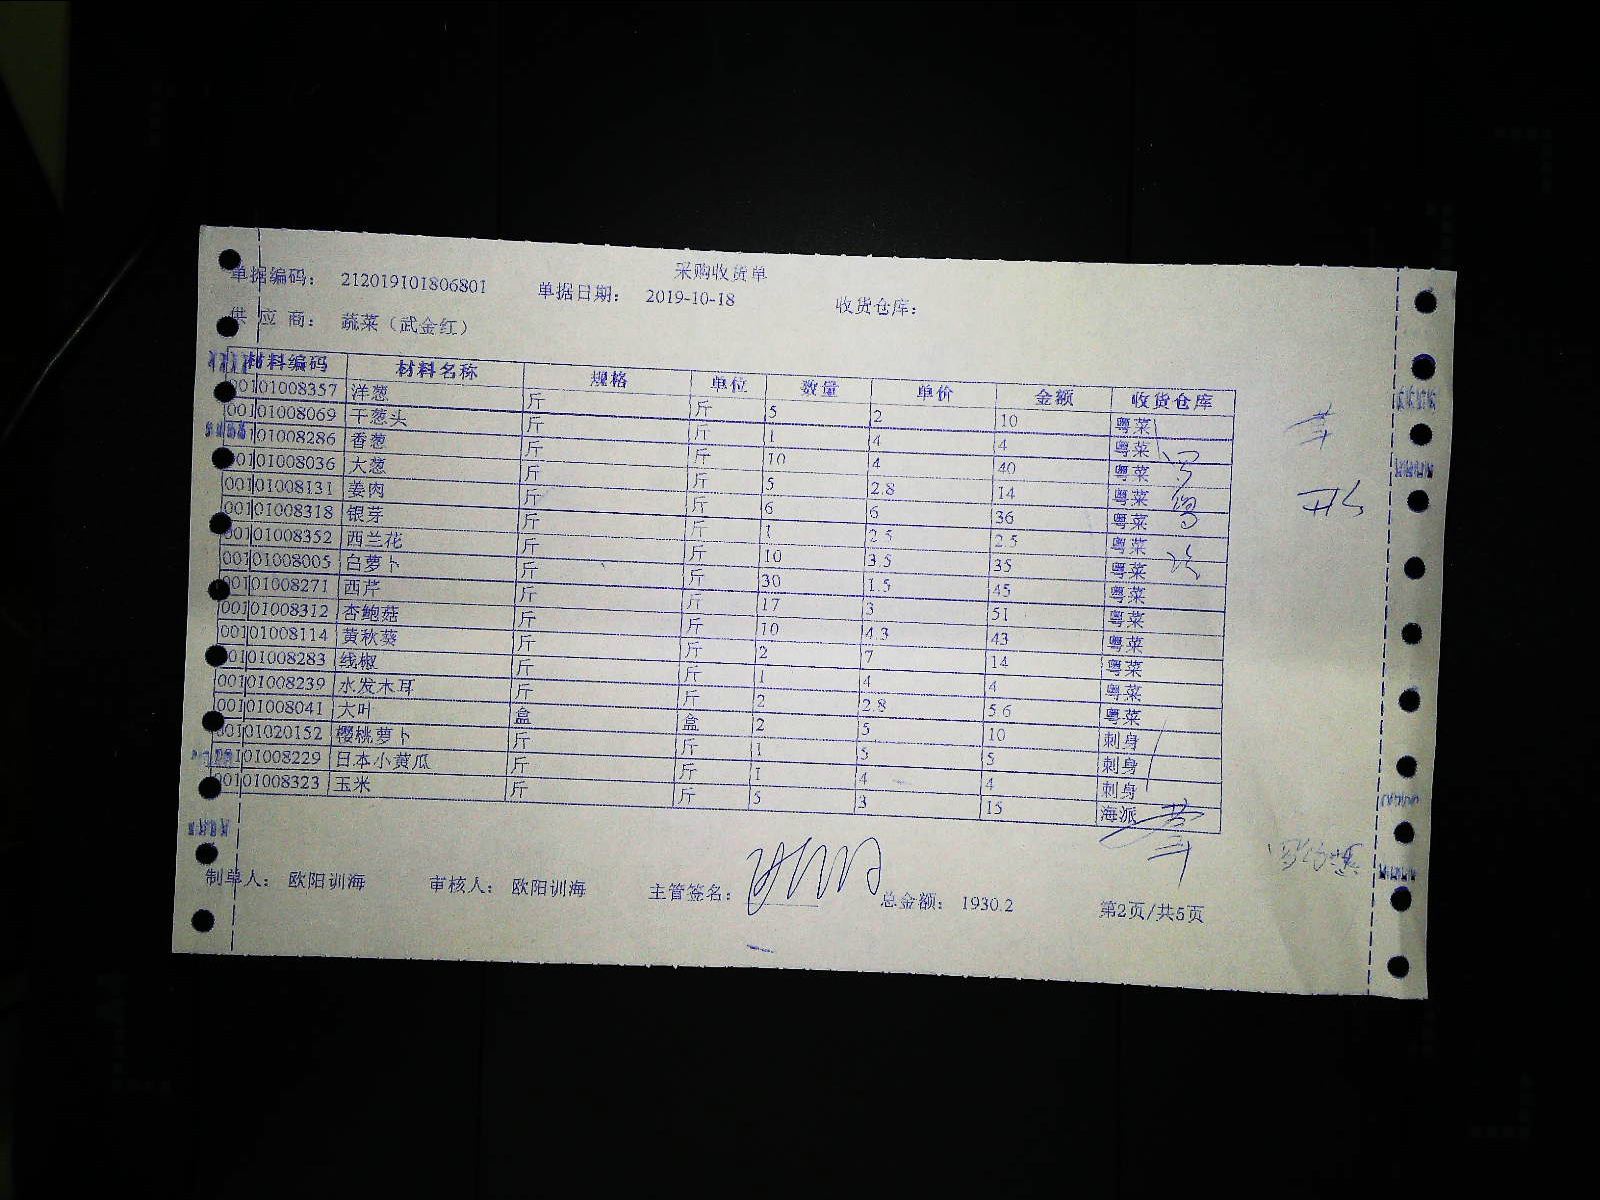 采购收货单
单据编码： 212019101806801 单据日期： 2019-10-18 收货仓库：
供 应 商： 蔬菜（武金红）
材料编码 材料名称 规格 单位 数量 单价 金额 收货仓库
00101008357 洋葱 斤 斤 5 2 10 粤菜
00101008069 干葱头 斤 斤 1 4 4 粤菜
00101008286 香葱 斤 斤 10 4 40 粤菜
00101008036 大葱 斤 斤 5 2.8 14 粤菜
00101008131 姜肉 斤 斤 6 6 36 粤菜
00101008318 银芽 斤 斤 1 2.5 2.5 粤菜
00101008352 西兰花 斤 斤 10 3.5 35 粤菜
00101008005 白萝卜 斤 斤 30 1.5 45 粤菜
00101008271 西芹 斤 斤 17 3 51 粤菜
00101008312 杏鲍菇 斤 斤 10 4.3 43 粤菜
00101008114 黄秋葵 斤 斤 2 7 14 粤菜
00101008283 线椒 斤 斤 1 4 4 粤菜
00101008239 水发木耳 斤 斤 2 2.8 5.6 粤菜
00101008041 大叶 盒 盒 2 5 10 刺身
00101020152 樱桃萝卜 斤 斤 1 5 5 刺身
00101008229 日本小黄瓜 斤 斤 1 4 4 刺身
00101008323 玉米 斤 斤 5 3 15 海派
制单人： 欧阳训海 审核人： 欧阳训海 主管签名： 总金额： 1930.2 第2页/共5页